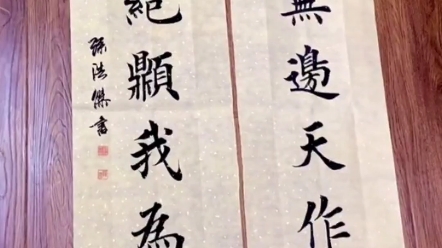 無邊天作
絕顛我為
孫洪傑書